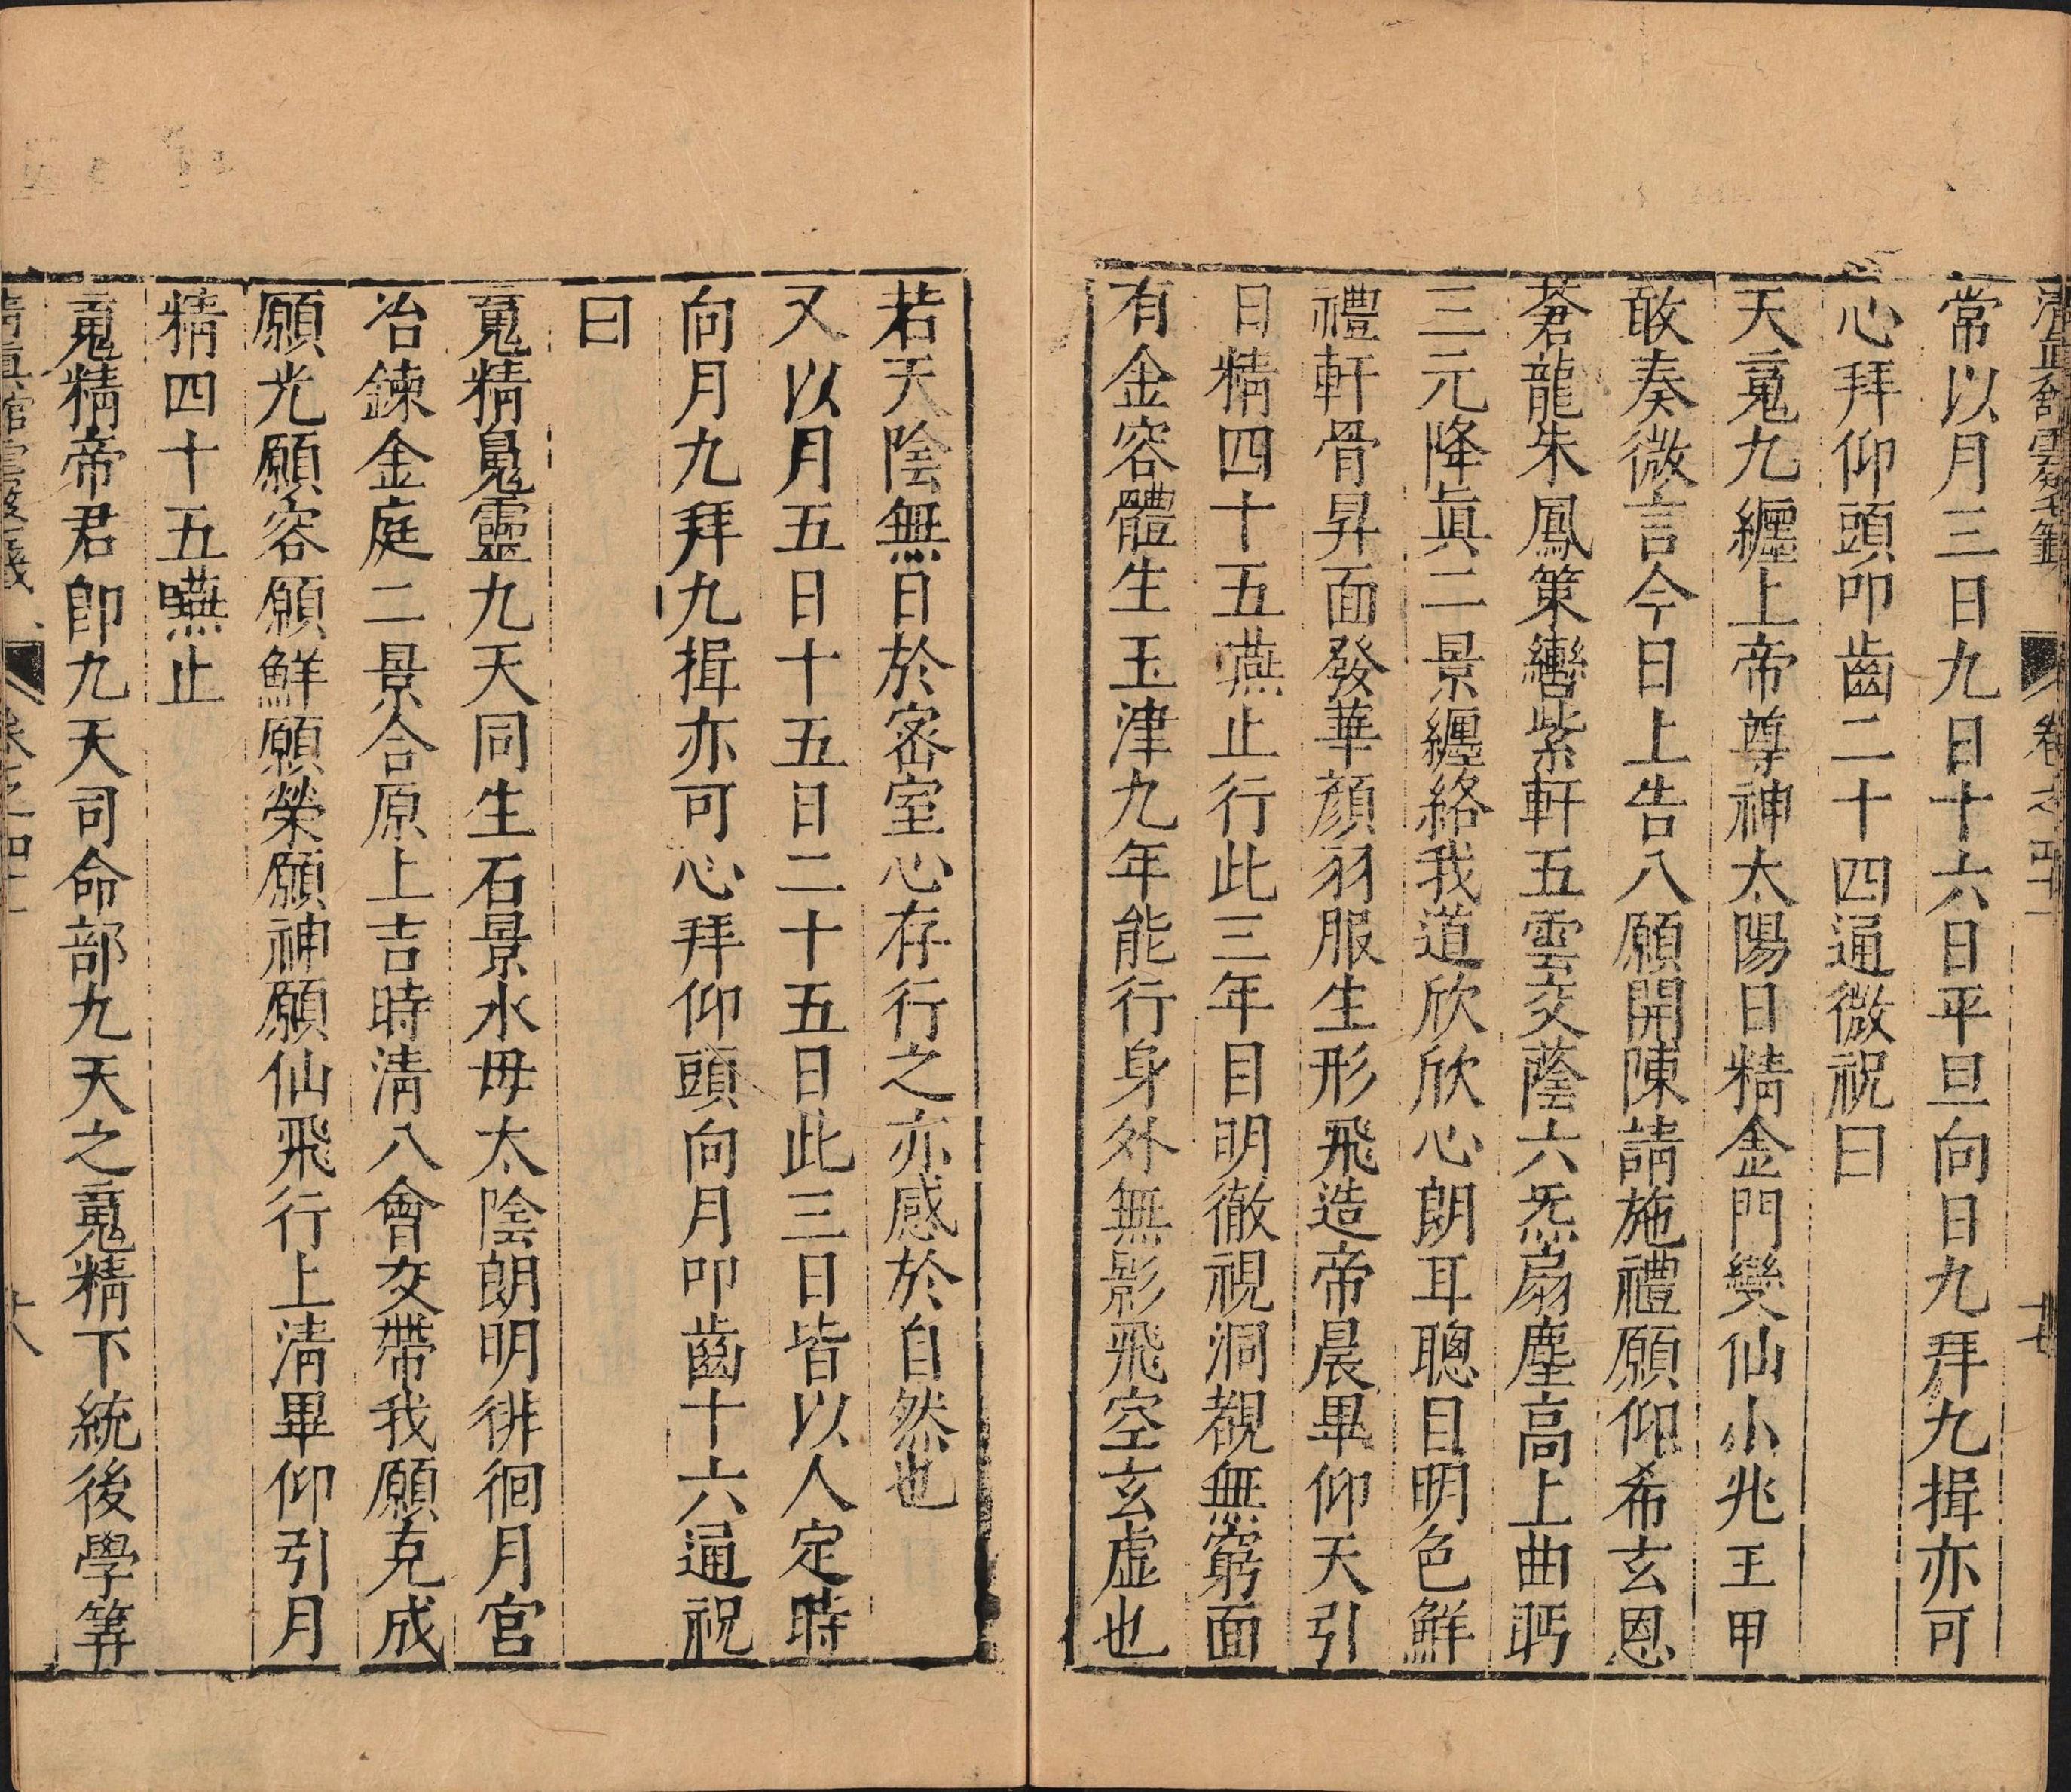 清眞館雲笈七籤 卷之四十一 十七
常以月三日九日十六日平旦向日九拜九揖亦可
心拜仰頭叩齒二十四通微祝曰
天䰟九纒上帝尊神太陽日精金門變仙小兆王甲
敢奏微言今日上告八願開陳請施禮願仰希玄恩
蒼龍朱鳳策轡紫軒五雲交蔭六炁扇塵高上曲眄
三元降眞二景纒絡我道欣欣心朗耳聰目明色鮮
禮軒骨昇面發華顔羽服生形飛造帝晨畢仰天引
日精四十五嚥止行此三年目明徹視洞覩無窮面
有金容體生玉津九年能行身外無影飛空玄虛也
若天陰無日於密室心存行之亦感於自然也
又以月五日十五日二十五日此三日皆以人定時
向月九拜九揖亦可心拜仰頭向月叩齒十六通祝
曰
䰟精䰟靈九天同生石景水母太陰朗明徘徊月宮
冶鍊金庭二景合原上吉時淸八會交帶我願克成
願光願容願鮮願榮願神願仙飛行上淸畢仰引月
精四十五嚥止
䰟精帝君卽九天司命部九天之䰟精下統後學筭